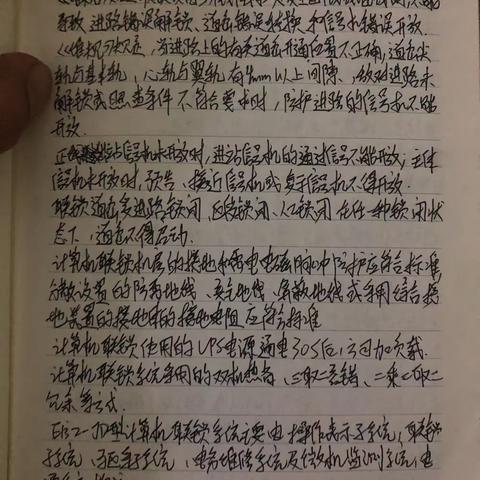 导致进路错误解锁、道岔错误转换和信号机错误开放.
当进路上的有关道岔开通位置不正确,道岔尖
轨与基本轨,心轨与翼轨有4mm以上间隙、敌对进路未
解锁或照查条件不符合要求时,防护进路的信号机不能
开放.
正线出站信号机未开放时,进站信号机的通过信号不能开放;主体
信号机未开放时,预告、接近信号机或复示信号机不得开放.
联锁道岔在进路锁闭、区段锁闭、人工锁闭在任一种锁闭状
态下,道岔不得启动.
计算机联锁机房的接地和雷电电磁脉冲防护应符合标准
分散设置的防雷地线、安全地线、屏蔽地线或采用综合接
地装置的接地体的接地电阻应符合标准
计算机联锁使用的UPS电源通电30S后,方可加负载.
计算机联锁系统采用的双机热备、三取二容错、二乘二取二
冗余等方式.
EI32-JD型计算机联锁系统主要由操作表示子系统,联锁
子系统、驱采子系统、电务维修子系统及微机监测子系统,电